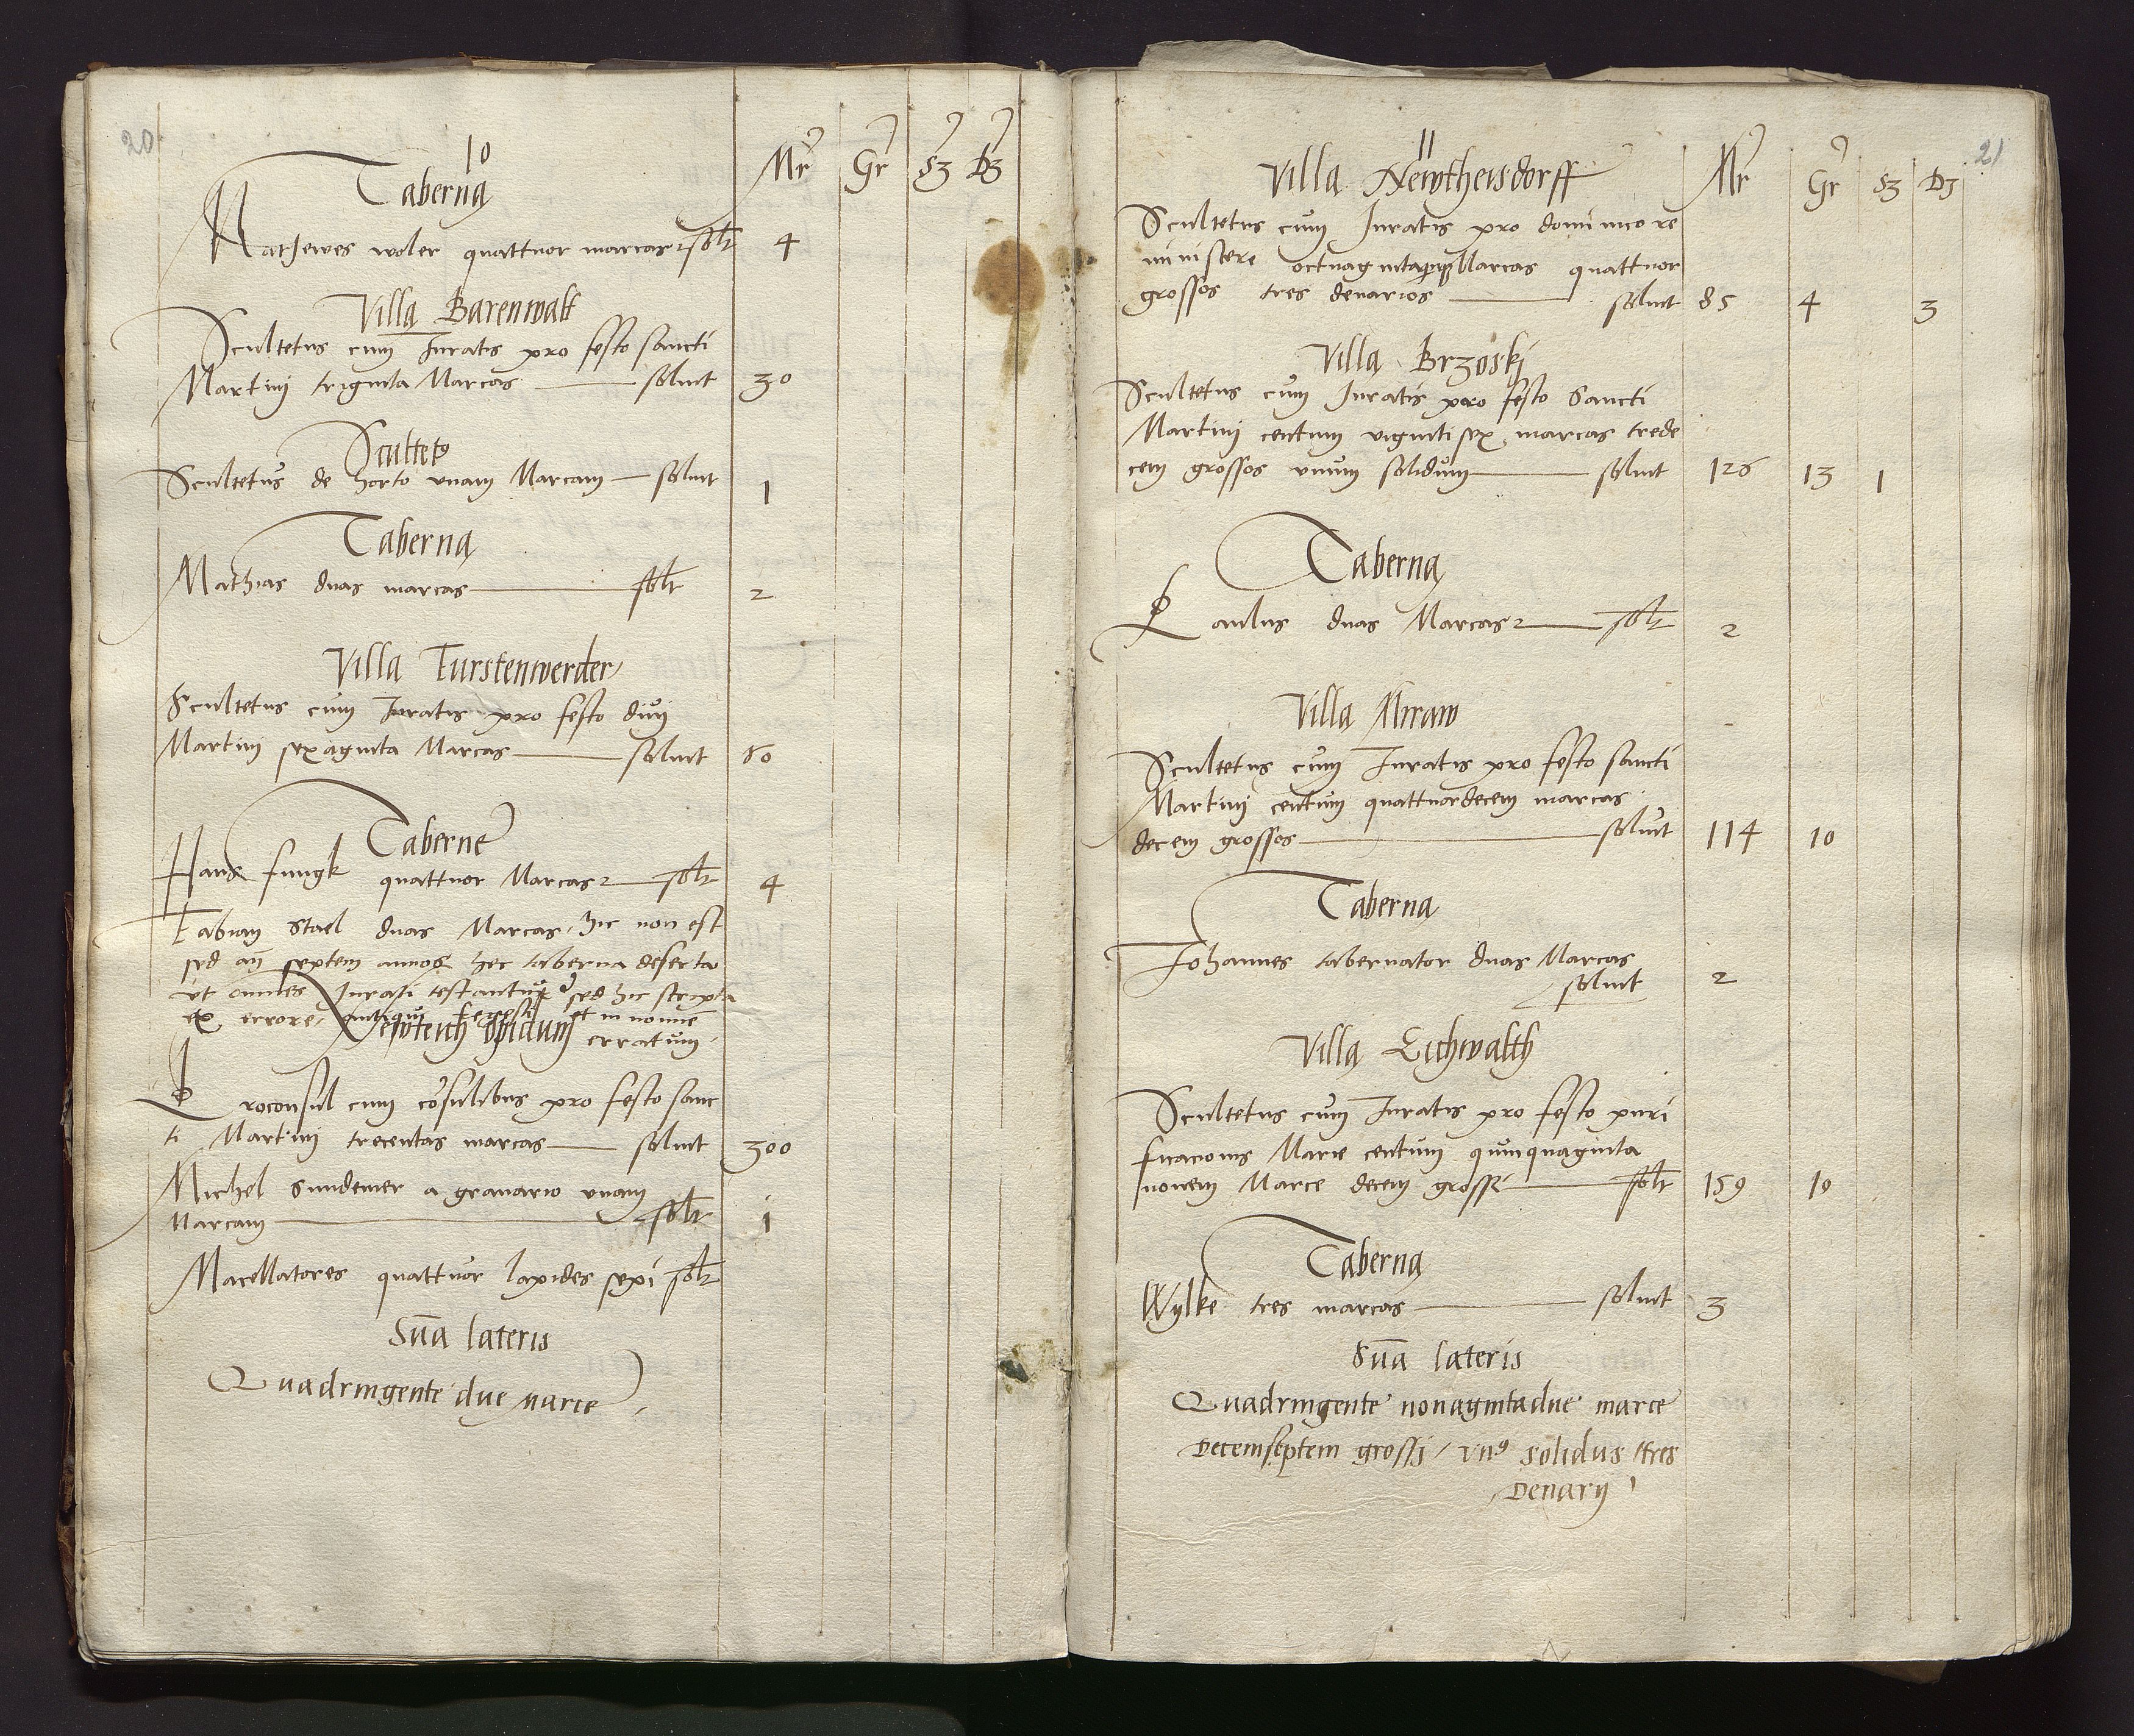 20
10
Mr Gr S3 D3
Taberna
Mathewes woler quattuor marcas solt 4
Villa Barenwalt
Scultetus cum Iuratis pro festo sancti
Martinj triginta Marcas soluit 30
Scultet9
Scultetus de horto vnam Marcam soluit 1
Taberna
Mathias duas marcas solt 2
Villa Furstenwerder
Scultetus cum Iuratis pro festo diuj
Martinj sexaginta Marcas soluit 60
Taberne
Hans fungk quattuor Marcas solt 4
Fabian Stael duas Marcas hic non est
sed añ septem annos hec taberna deserta
vt omnes Iurati testantur sed hic scripta
ex errore antiqui regestri et in nomine
erratum
Newteich opidum
Proconsul cum cõsulibus pro festo sanc
ti Martinj trecentas marcas soluit 300
Michel Sundemer a granario vnam
Marcam solt 1
Macellatores quattuor lapides sepi solt
Sũa lateris
Quadringente due marce
21
11
Mr Gr S3 D3
Villa Newtheisdorff
Scultetus cum Iuratis pro dominico re
miniscere octuaginta Marcas quattuor
grossos tres denarios soluit 85 4 3
Villa Brzoskj
Scultetus cum Iuratis pro festo Sancti
Martinj centum vigintisex marcas trede
cem grossos vnum solidum soluit 126 13 1
Taberna
Paulus duas Marcas solt 2
Villa Miraw
Scultetus cum Iuratis pro festo sancti
Martinj centum quattuordecem marcas
decem grossos soluit 114 10
Taberna
Iohannes tabernator duas Marcas
soluit 2
Villa Eichwalth
Scultetus cum Iuratis pro festo puri
ficacionis Marie centum quinquaginta
nouem Marce decem grossi solt 159 10
Taberna
Wylke tres marcas soluit 3
Sũa lateris
Quadringente nonagintadue marce
Decemseptem grossj / vn9 solidus tres
Denarij